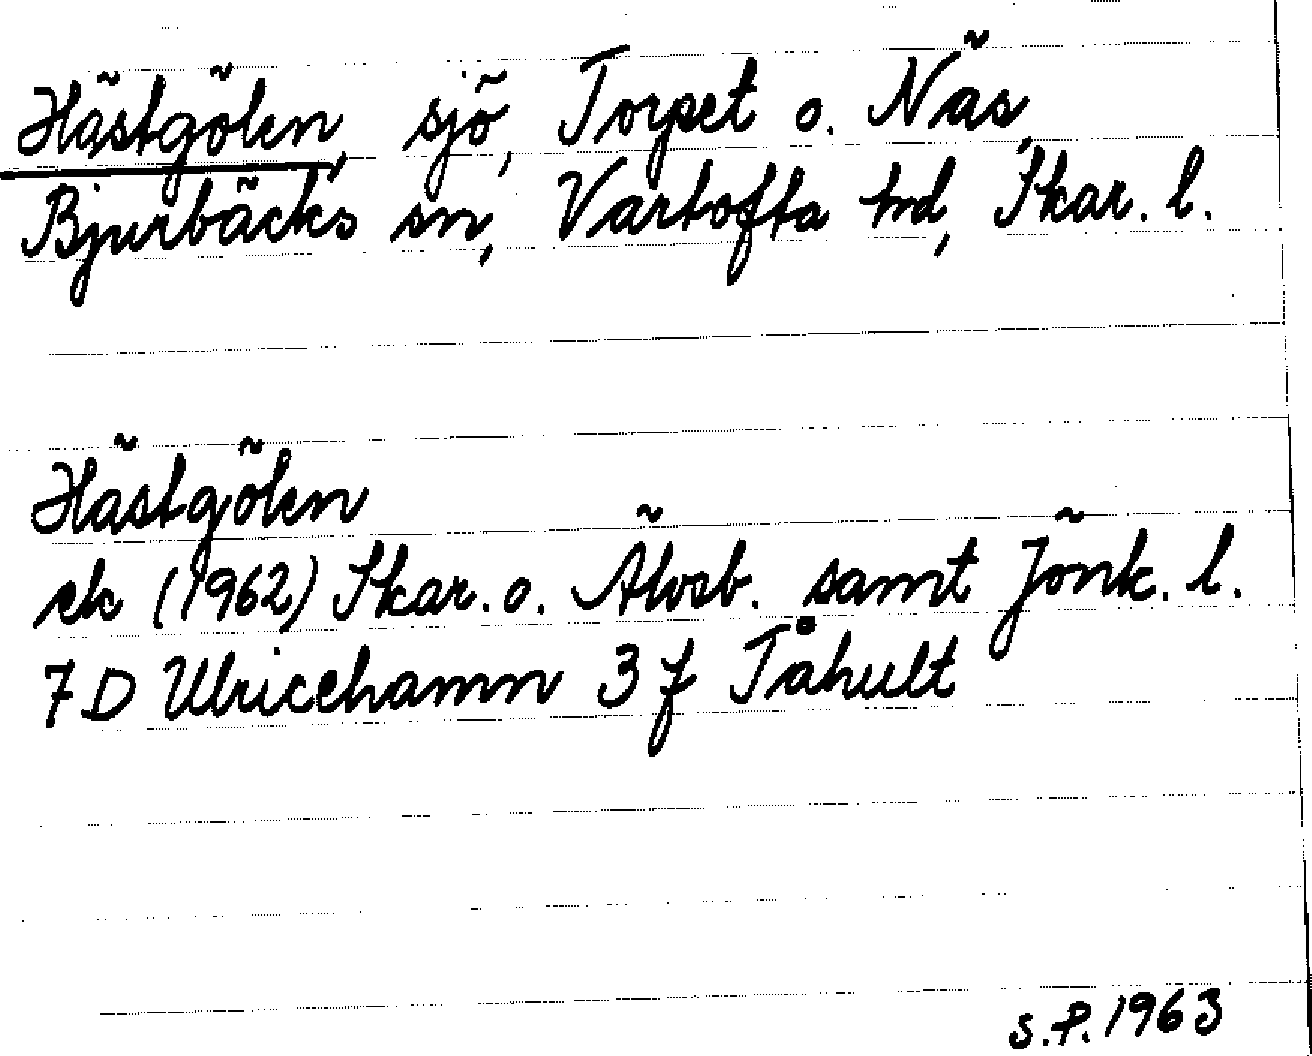 Hästgölen, sjö, Torpet o. Näs,
Bjurbäcks sn, Vartofta hd, Skar. l.
Hästgölen
ek (1962) Skar. o. Älvsb. samt Jönk. l.
7 D Ulricehamn 3 f Tåhult
S.P. 1963